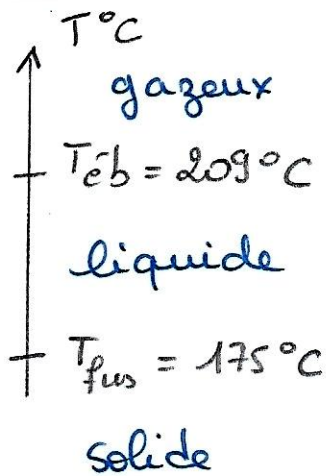 T°C
gazeux
Téb = 209°C
liquide
Tfus = 175°C
solide